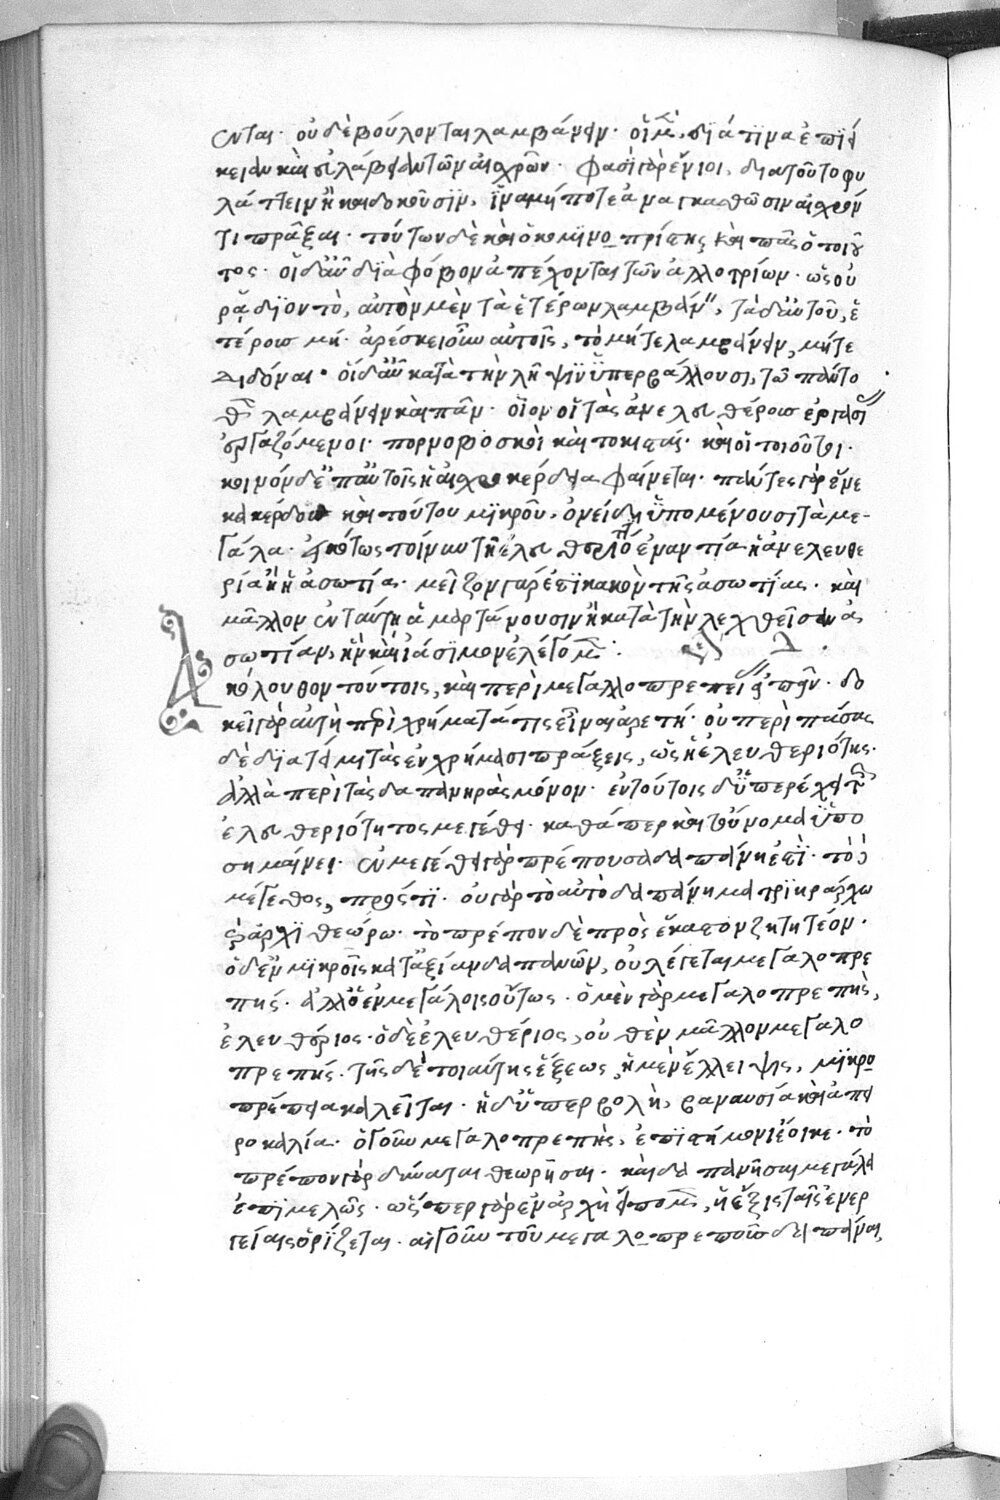 ενται· οὐδὲ βούλονται λαμβάνειν· οἱ μὲν, διά τινα ἐπιεί
κειαν καὶ εὐλάβειαν τῶν αἰσχρῶν· φασὶ γὰρ ἔνιοι, διὰ τοῦτο φυ
λάττειν ἢ καὶ δοκοῦσιν, ἵνα μή ποτε ἀναγκασθῶσιν αἰσχρόν
τι πρᾶξαι· τούτων δὲ καὶ ὁ κυμινοπρίστης καὶ πᾶς ὁ τοιοῦ
τος· οἱ δ' αὖ διὰ φόβον ἀπέχονται τῶν ἀλλοτρίων· ὡς οὐ
ῥᾴδιον τὸ, αὐτὸν μὲν τὰ ἑτέρων λαμβάνειν, τὰ δ' αὐτοῦ, ἑ
τέρους μή· ἀρέσκει οὖν αὐτοῖς, τὸ μήτε λαμβάνειν, μήτε
διδόναι· οἱ δ' αὖ κατὰ τὴν λῆψιν ὑπερβάλλουσι, τῷ πάντο
θεν λαμβάνειν καὶ πᾶν· οἷον οἱ τὰς ἀνελευθέρους ἐργασίας
ἐργαζόμενοι· πορνοβοσκοὶ καὶ τοκισταί· καὶ οἱ τοιοῦτοι·
κοινὸν δ' ἐπ' αὐτοῖς ἡ αἰσχροκέρδεια φαίνεται· πάντες γὰρ ἕνε
κα κέρδους καὶ τούτου μικροῦ, ὀνείδη ὑπομένουσι τὰ με-
γάλα· εἰκότως τοίνυν τῇ ἐλευθεριότητι ἐναντία ἡ ἀνελευθε
ρία ἢ ἡ ἀσωτία· μεῖζον γάρ ἐστι κακὸν τῆς ἀσωτίας· καὶ
μᾶλλον ἐν ταύτῃ ἁμαρτάνουσιν ἢ κατὰ τὴν λεχθεῖσαν ἀ
σωτίαν, ἣν καὶ ἰάσιμον ἐλέγομεν:
Ἀκόλουθον τούτοις, καὶ περὶ μεγαλλοπρεπείας εἰπεῖν· δο
κεῖ γὰρ αὐτὴ περὶ χρήματά τις εἶναι ἀρετή· οὐ περὶ πάσας
δὲ διατείνει τὰς ἐν χρήμασι πράξεις, ὡς ἡ ἐλευθεριότης·
ἀλλὰ περὶ τὰς δαπανηρὰς μόνον· ἐν τούτοις δ' ὑπερέχει τῆς
ἐλευθεριότητος μεγέθει· καθάπερ καὶ τοὔνομα ὑπο
σημαίνει· ἐν μεγέθει γὰρ πρέπουσα δαπάνη ἐστί· τὸ δὲ
μέγεθος, πρός τι· οὐ γὰρ τὸ αὐτὸ δαπάνημα τριηράρχῳ
καὶ ἀρχιθεώρῳ· τὸ πρέπον δὲ πρὸς ἕκαστον ζητητέον·
ὁ δ' ἐν μικροῖς κατ' ἀξίαν δαπανῶν, οὐ λέγεται μεγαλοπρε
πής· ἀλλ' ὁ ἐν μεγάλοις οὕτως· ὁ μὲν γὰρ μεγαλοπρεπὴς,
ἐλευθέριος· ὁ δὲ ἐλευθέριος, οὐθὲν μᾶλλον μεγαλο
πρεπής· τῆς δὲ τοιαύτης ἕξεως, ἡ μὲν ἔλλειψις, μικρο
πρέπεια καλεῖται· ἡ δ' ὑπερβολὴ, βαναυσία καὶ ἀπει
ροκαλία· ὁ γοῦν μεγαλοπρεπὴς, ἐπιστήμονι ἔοικε· τὸ
πρέπον γὰρ δύναται θεωρῆσαι· καὶ δαπανῆσαι μεγάλα
ἐπιμελῶς· ὥσπερ γὰρ ἐν ἀρχῇ εἴπομεν, ἡ ἕξις ταῖς ἐνερ
γείαις ὁρίζεται· αἱ γοῦν τοῦ μεγαλοπρεποῦς δὲ δαπάναι,